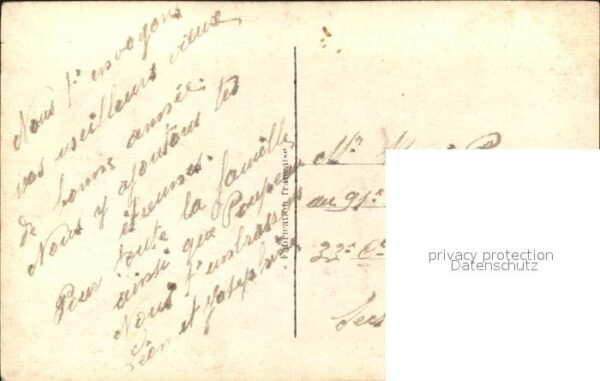 Nous t'envoyons
vos meilleurs vœux
de bonne année.
Nous y ajoutons tes
étrennes.
Pour toute la famille
ainsi que Poupeau
Nous t'embrassons
Léon et Joséphine
Fabrication française
Mr
au 91e
22e Cie
privacy protection
Datenschutz